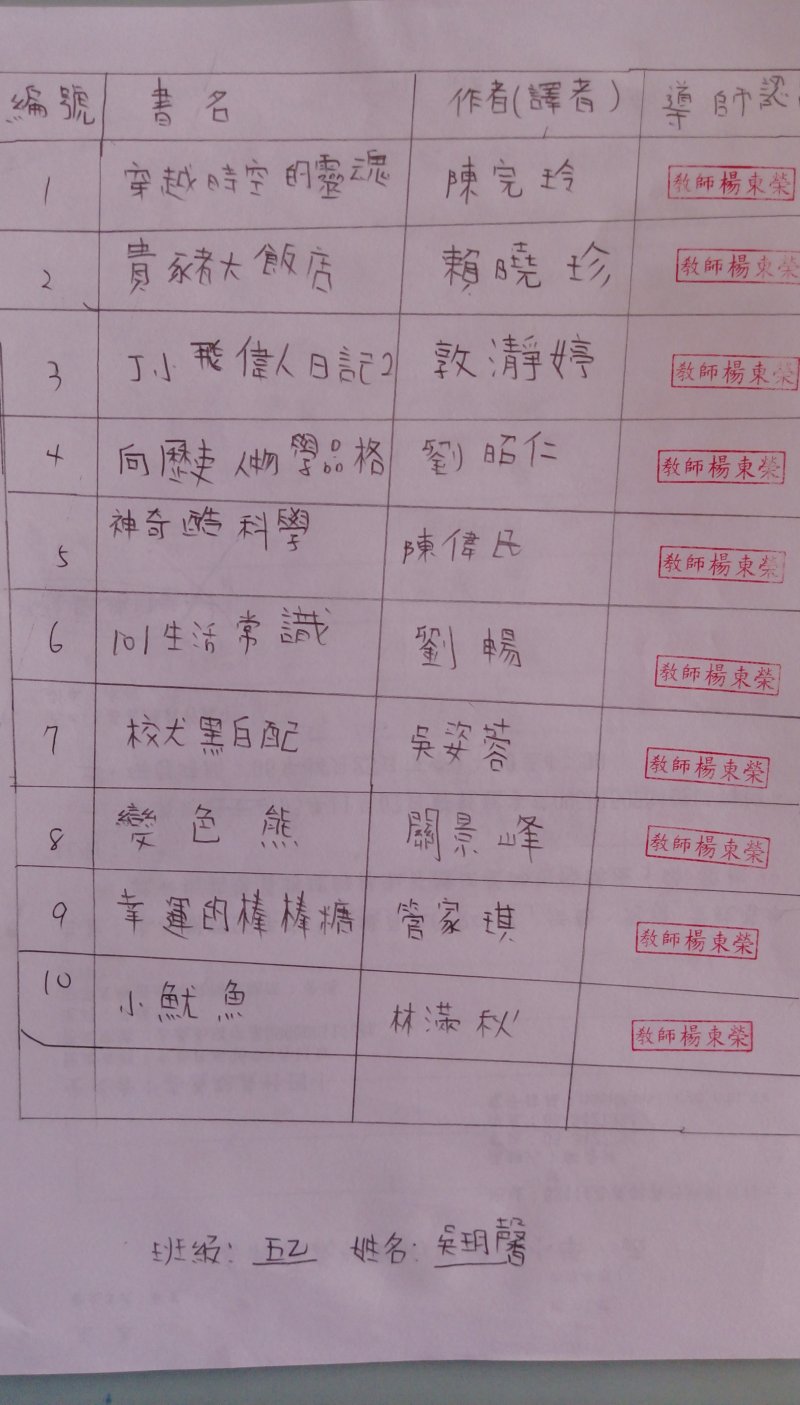 編號 書名 作者(譯者) 導師認
1 穿越時空的靈魂 陳完玲 教師楊東榮
2 貴豬大飯店 賴曉珍 教師楊東榮
3 丁小飛偉人日記2 敦瀞婷 教師楊東榮
4 向歷史人物學品格 劉昭仁 教師楊東榮
5 神奇酷科學 陳偉民 教師楊東榮
6 101生活常識 劉暢 教師楊東榮
7 校犬黑白配 吳姿蓉 教師楊東榮
8 變色熊 關景峰 教師楊東榮
9 幸運的棒棒糖 管家琪 教師楊東榮
10 小魷魚 林滿秋 教師楊東榮
班級: 五乙 姓名: 吳玥馨